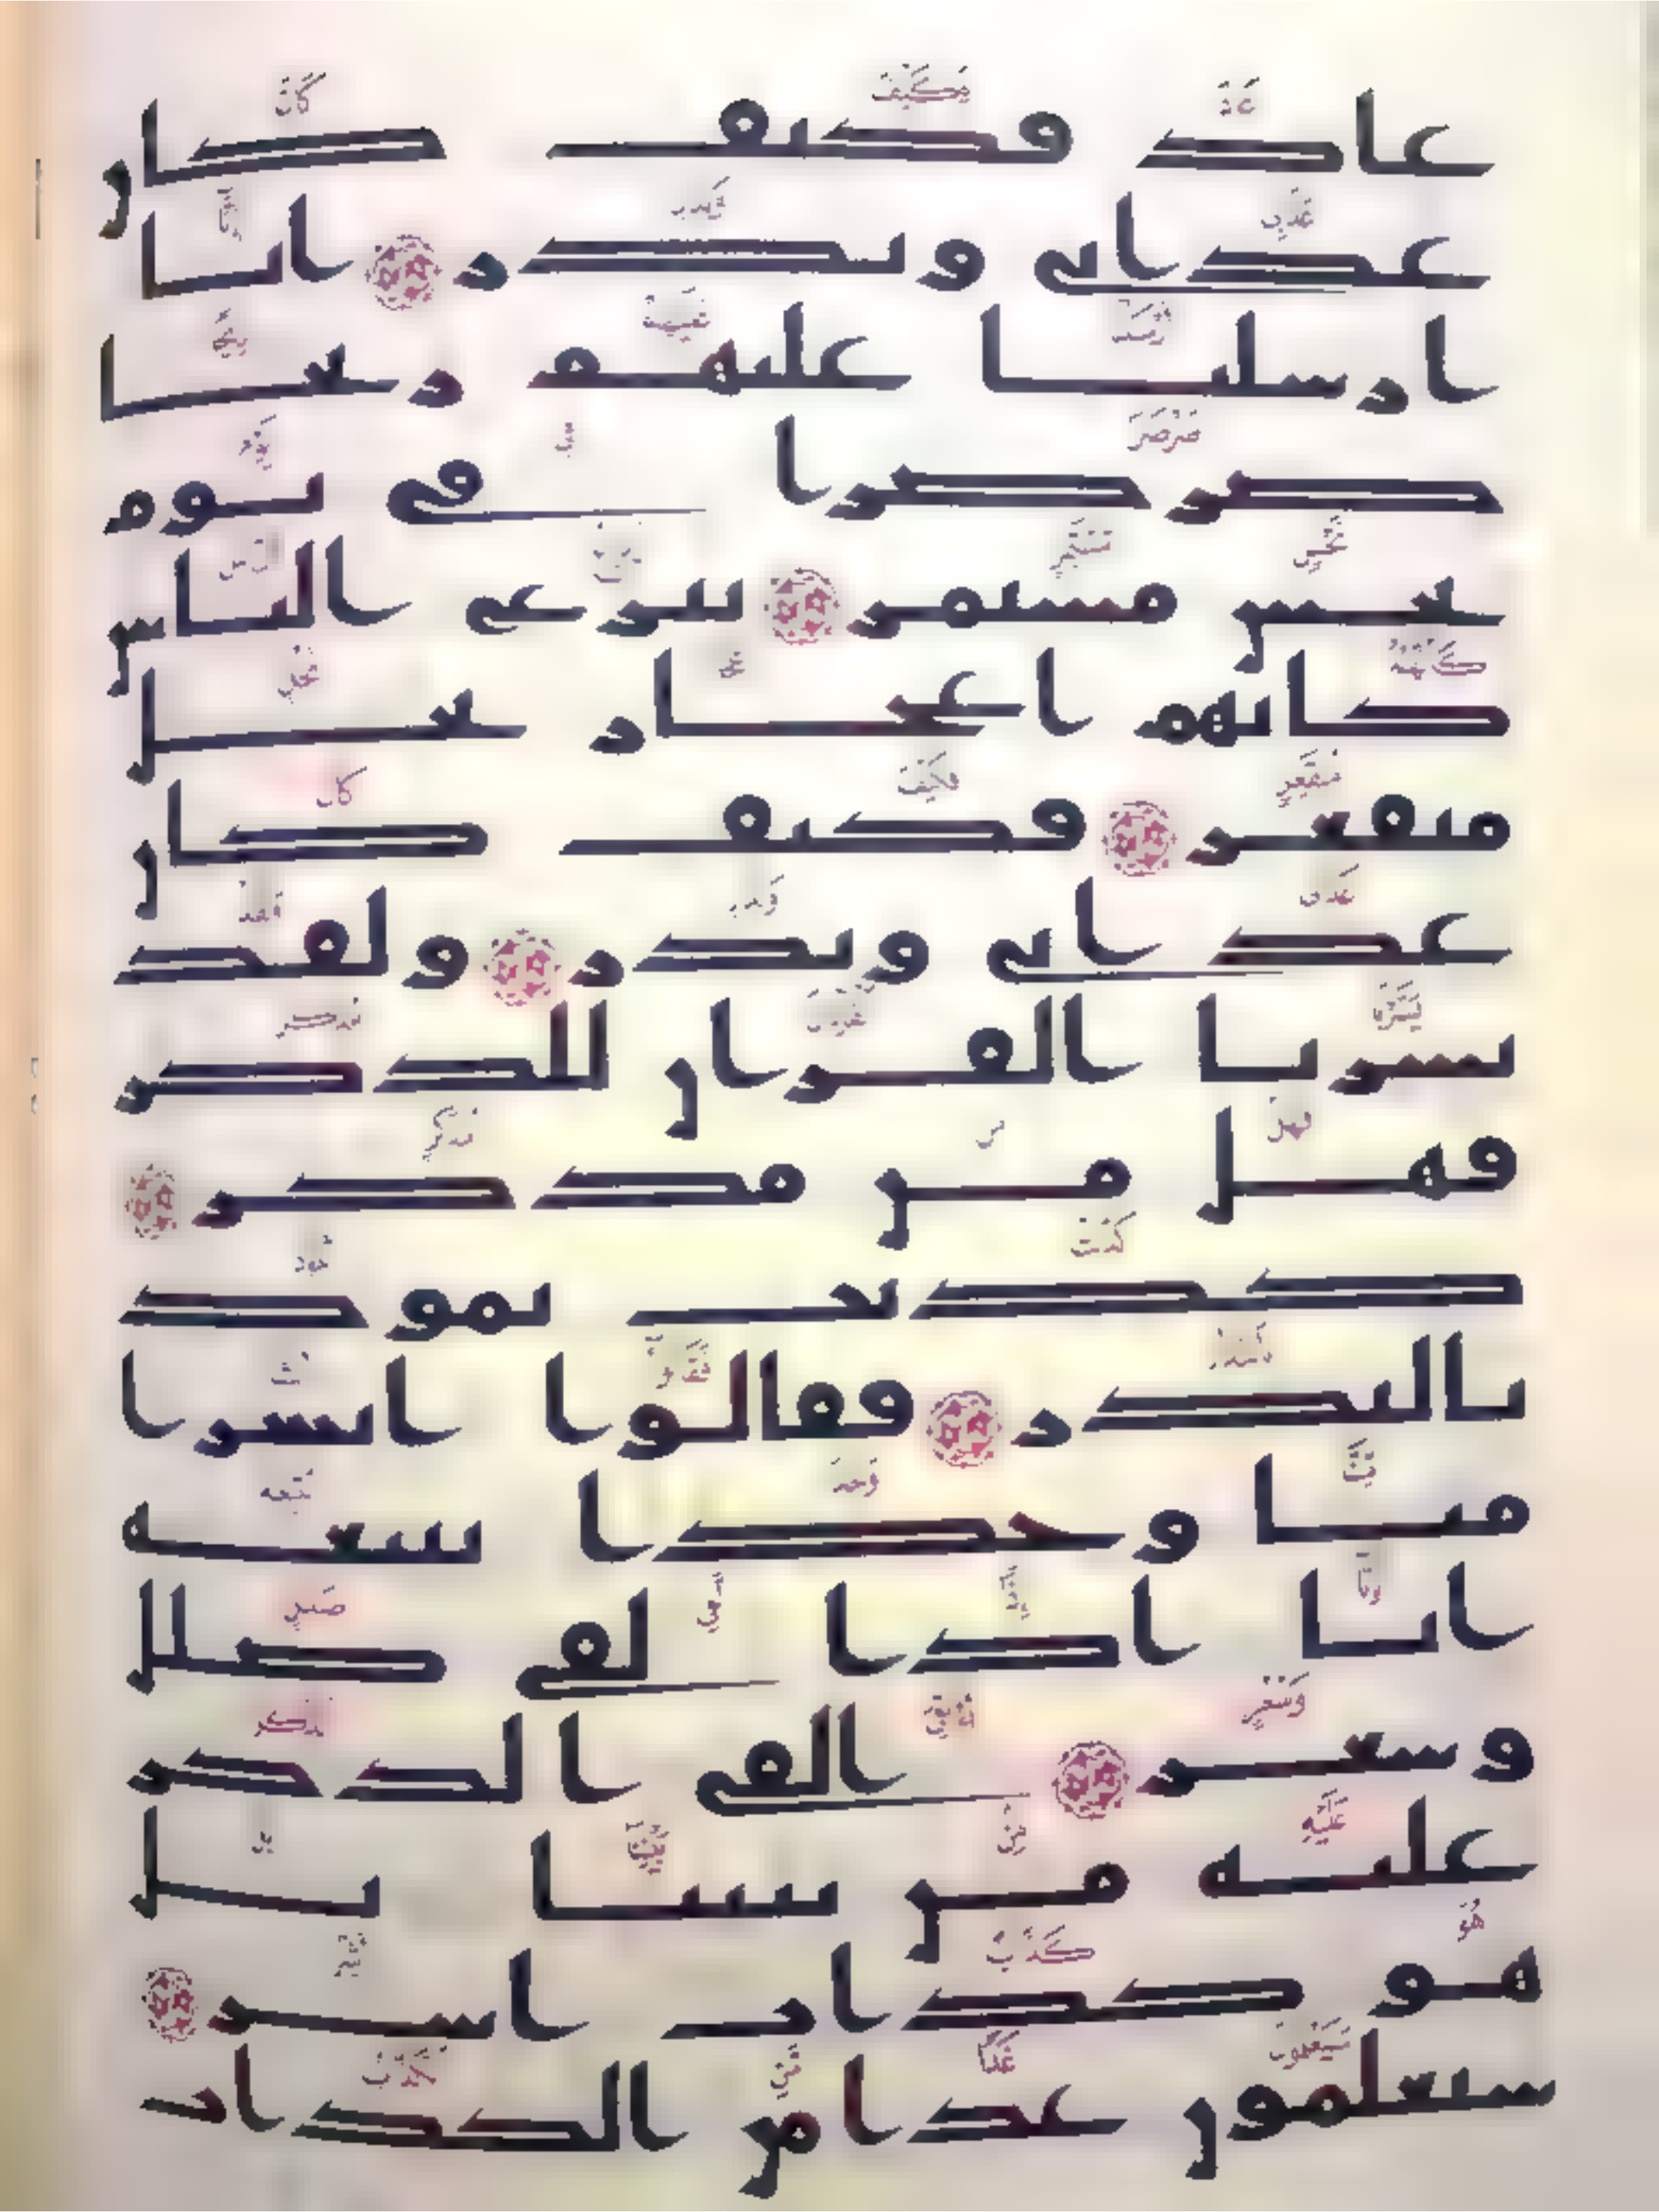 عاد فكيف كان
عذابي ونذر انا
ارسلنا عليهم ريحا
صرصرا في يوم
نحس مستمر تنزع الناس
كانهم اعجاز نخل
منقعر فكيف كان
عذابي ونذر ولقد
يسرنا القران للذكر
فهل من مدكر
كذبت ثمود
بالنذر فقالوا ابشرا
منا وحدا نتبعه
انا اذا لفي ضلل
وسعر القي الذكر
عليه من بيننا بل
هو كذاب اشر
سيعلمون غدا من الكذاب